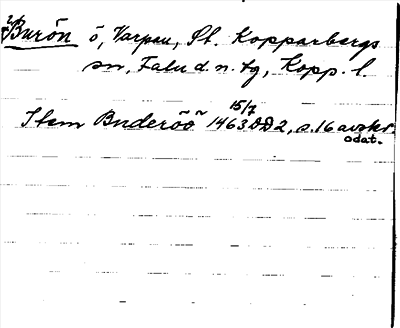 Burön ö, Varpan, St. Kopparbergs
sn, Falu d. n. tg, Kopp. l.
Item Buderöö 15/7 1463 DD2, s. 16 avskr.
odat.